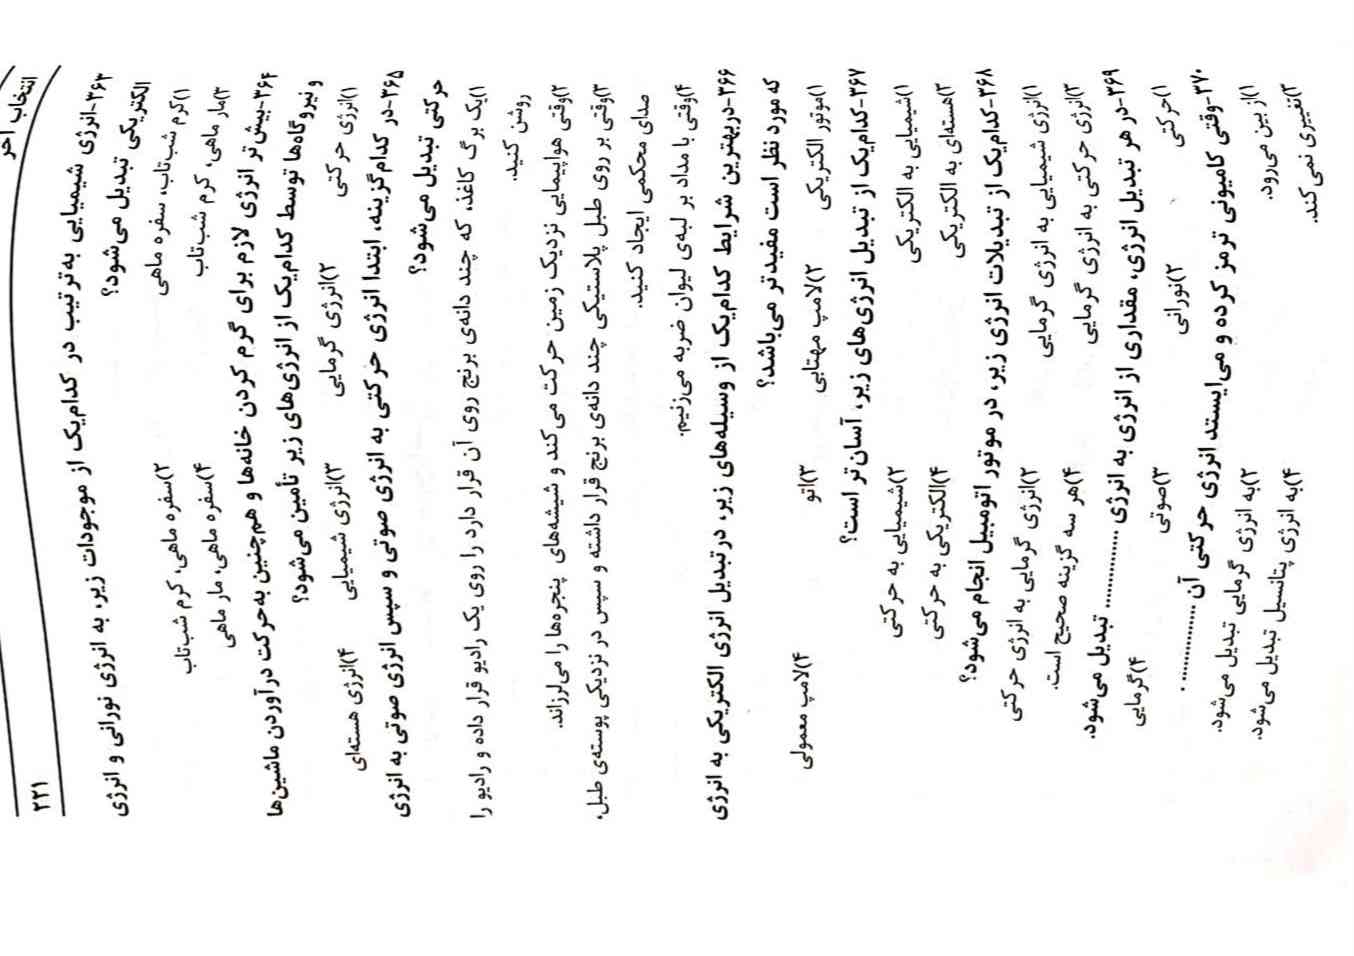 ۲۲۱
انتخاب آخر
۳۶۳-انرژی شیمیایی به‌ترتیب در کدام‌یک از موجودات زیر، به انرژی نورانی و انرژی
الکتریکی تبدیل می‌شود؟
۱)کرم شب‌تاب، سفره ماهی ۲)سفره ماهی، کرم شب‌تاب
۳)مار ماهی، کرم شب‌تاب ۴)سفره ماهی، مار ماهی
۳۶۴-بیش‌تر انرژی لازم برای گرم کردن خانه‌ها و هم‌چنین به‌حرکت درآوردن ماشین‌ها
و نیروگاه‌ها توسط کدام‌یک از انرژی‌های زیر تأمین می‌شود؟
۱)انرژی حرکتی ۲)انرژی گرمایی ۳)انرژی شیمیایی ۴)انرژی هسته‌ای
۳۶۵-در کدام گزینه، ابتدا انرژی حرکتی به انرژی صوتی و سپس انرژی صوتی به انرژی
حرکتی تبدیل می‌شود؟
۱)یک برگ کاغذ، که چند دانه‌ی برنج روی آن قرار دارد را روی یک رادیو قرار داده و رادیو را
روشن کنید.
۲)وقتی هواپیمایی نزدیک زمین حرکت می‌کند و شیشه‌های پنجره‌ها را می‌لرزاند.
۳)وقتی بر روی طبل پلاستیکی چند دانه‌ی برنج قرار داشته و سپس در نزدیکی پوسته‌ی طبل،
صدای محکمی ایجاد کنید.
۴)وقتی با مداد بر لبه‌ی لیوان ضربه می‌زنیم.
۳۶۶-دربهترین شرایط کدام‌یک از وسیله‌های زیر، در تبدیل انرژی الکتریکی به انرژی
که مورد نظر است مفیدتر می‌باشد؟
۱)موتور الکتریکی ۲)لامپ مهتابی ۳)اتو ۴)لامپ معمولی
۳۶۷-کدام‌یک از تبدیل انرژی‌های زیر، آسان‌تر است؟
۱)شیمیایی به الکتریکی ۲)شیمیایی به حرکتی
۳)هسته‌ای به الکتریکی ۴)الکتریکی به حرکتی
۳۶۸-کدام‌یک از تبدیلات انرژی زیر، در موتور اتومبیل انجام می‌شود؟
۱)انرژی شیمیایی به انرژی گرمایی ۲)انرژی گرمایی به انرژی حرکتی
۳)انرژی حرکتی به انرژی گرمایی ۴)هر سه گزینه صحیح است.
۳۶۹-در هر تبدیل انرژی، مقداری از انرژی به انرژی ............ تبدیل می‌شود.
۱)حرکتی ۲)نورانی ۳)صوتی ۴)گرمایی
۳۷۰-وقتی کامیونی ترمز کرده و می‌ایستد انرژی حرکتی آن ............ .
۱)از بین می‌رود. ۲)به انرژی گرمایی تبدیل می‌شود.
۳)تغییری نمی‌کند. ۴)به انرژی پتانسیل تبدیل می‌شود.